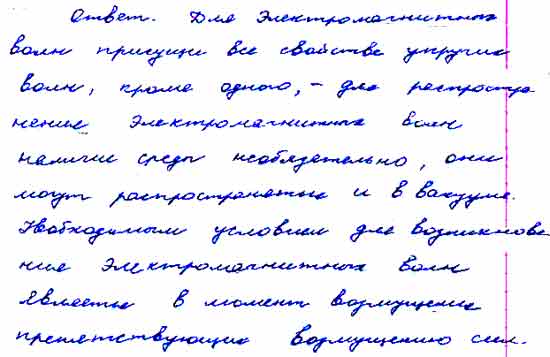 Ответ. Для электромагнитных
волн присущи все свойства упругих
волн, кроме одного, – для распростра
нение электромагнитных волн
наличие среды необязательно, они
могут распространяться и в вакууме.
Необходимым условием для возникнове
ние электромагнитных волн
является в момент возмущения
препятствующих возмущению сил.